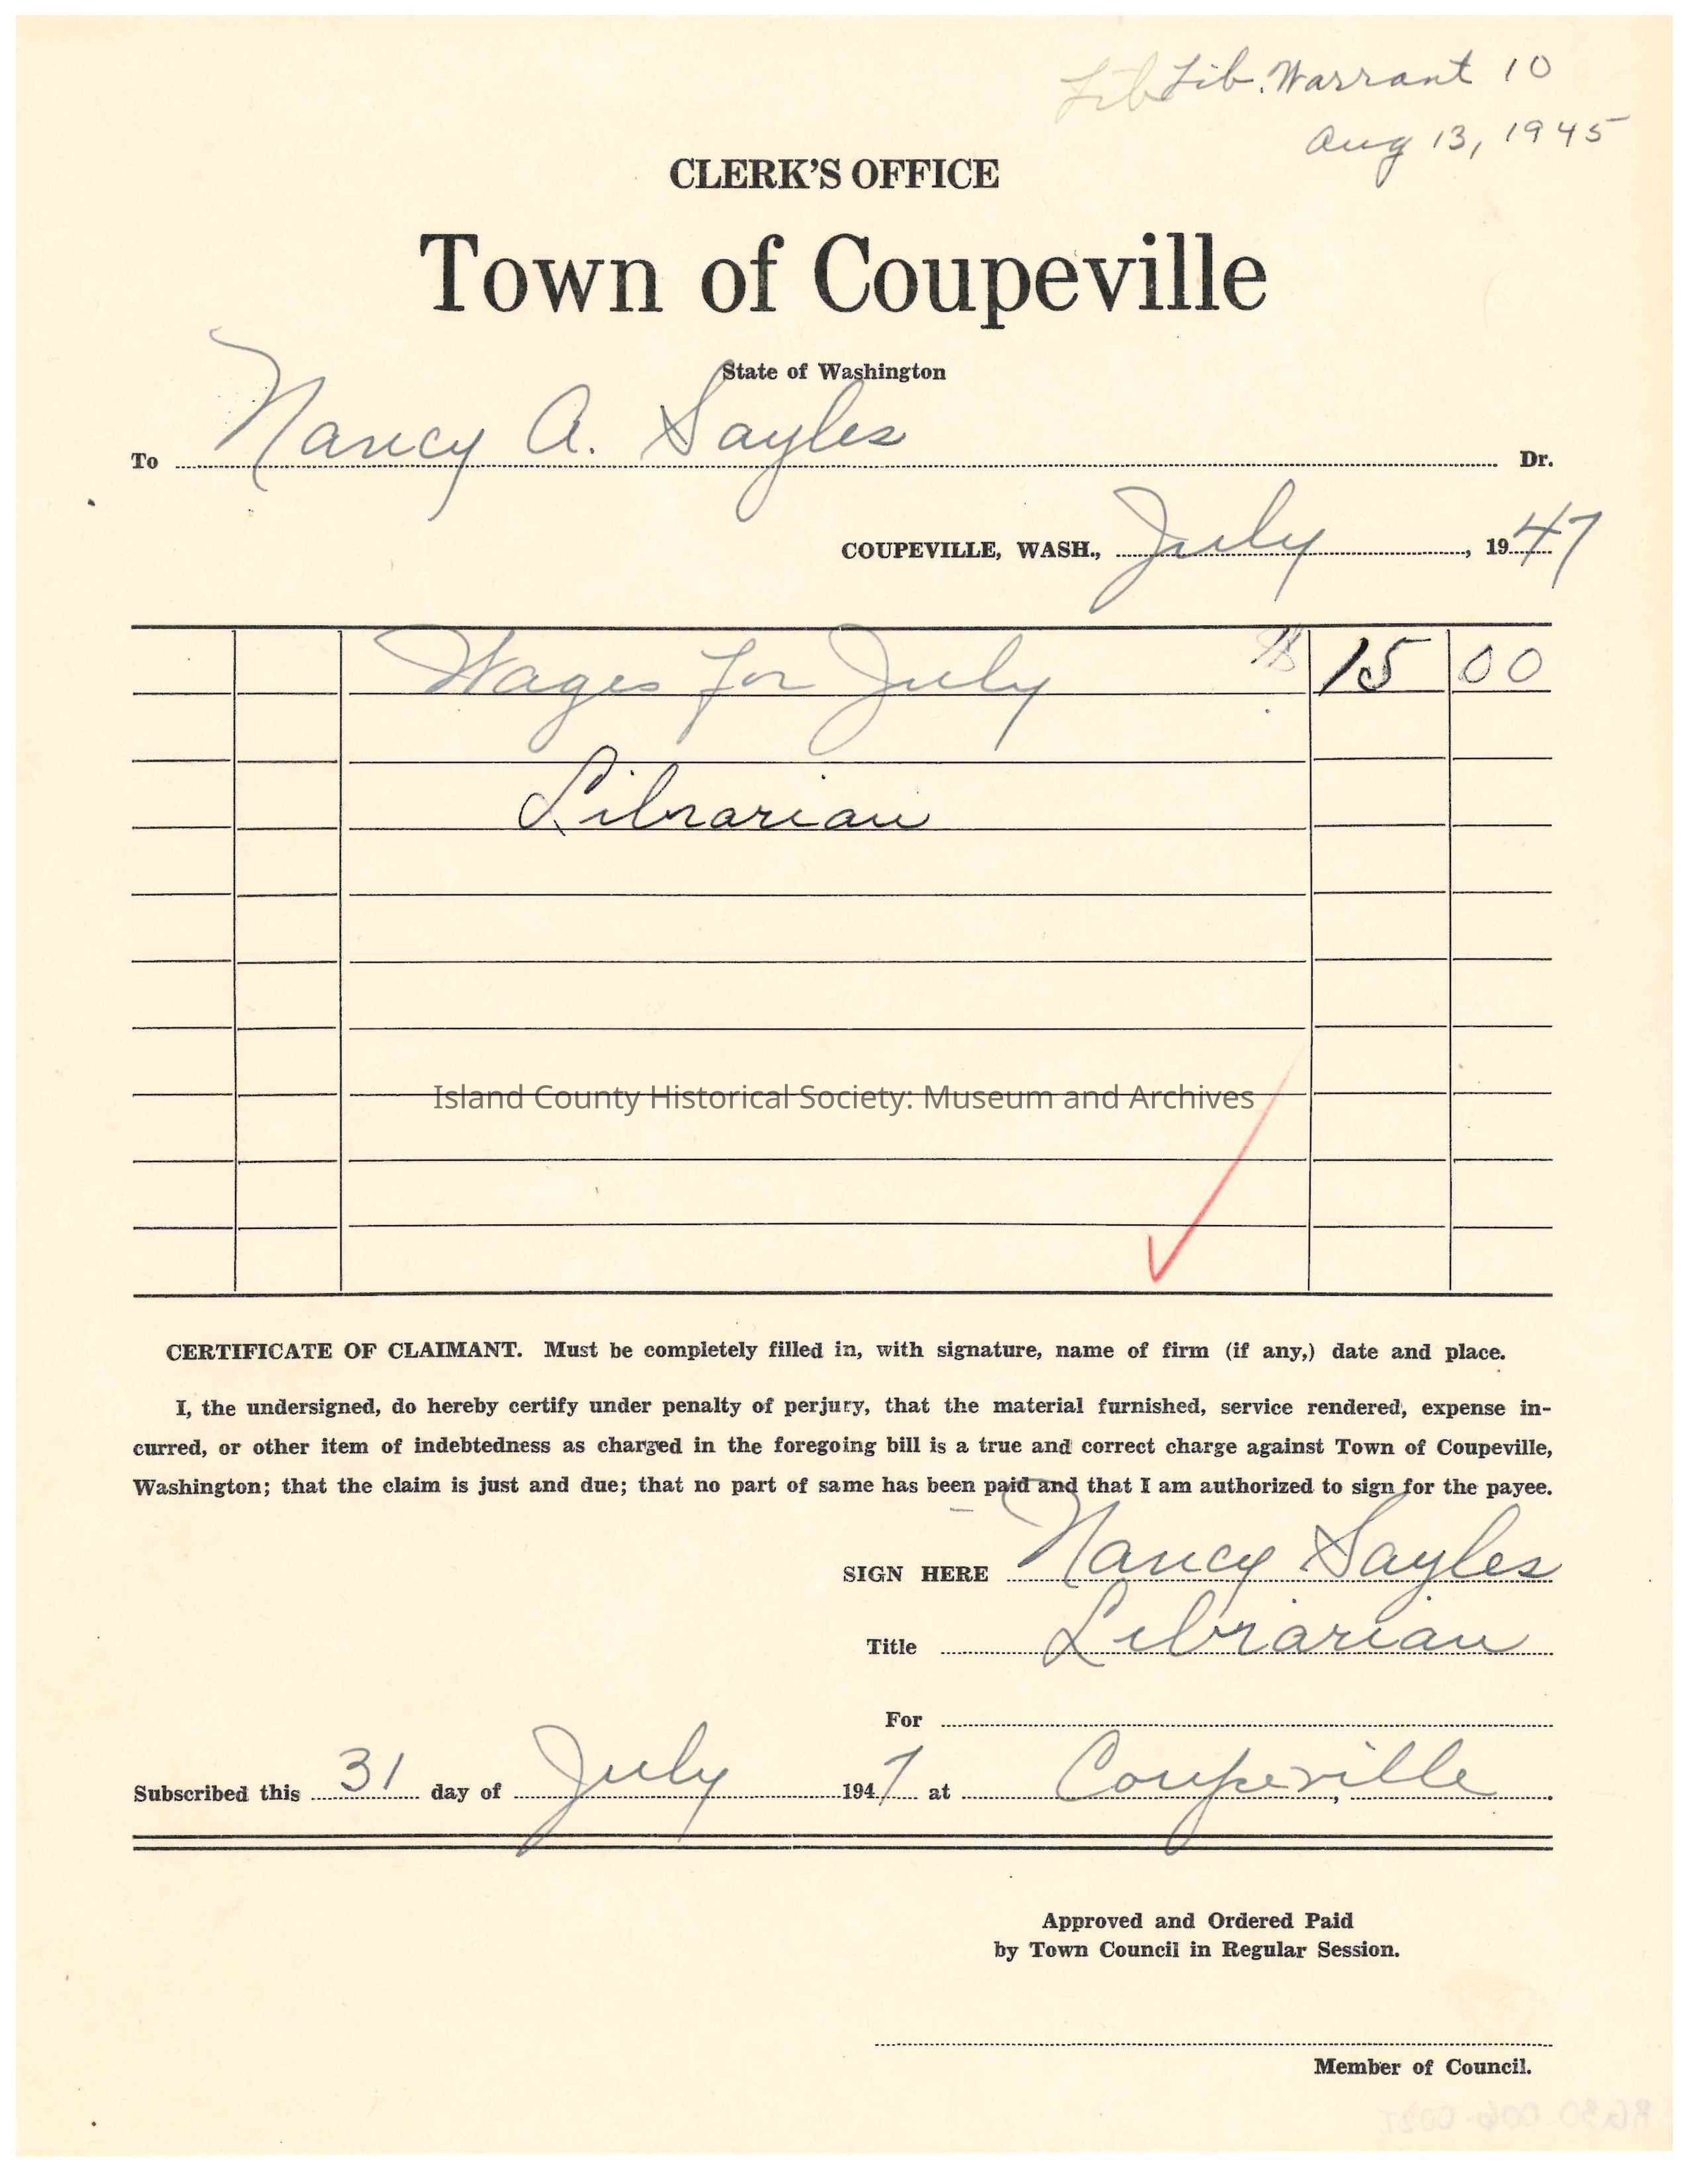 Lib Lib. Warrant 10
Aug 13, 1945
CLERK'S OFFICE
Town of Coupeville
State of Washington
To Nancy A. Sayles Dr.
COUPEVILLE, WASH., July, 1947
Wages for July 15 00
Librarian
Island County Historical Society: Museum and Archives
CERTIFICATE OF CLAIMANT. Must be completely filled in, with signature, name of firm (if any,) date and place.
I, the undersigned, do hereby certify under penalty of perjury, that the material furnished, service rendered, expense in-
curred, or other item of indebtedness as charged in the foregoing bill is a true and correct charge against Town of Coupeville,
Washington; that the claim is just and due; that no part of same has been paid and that I am authorized to sign for the payee.
SIGN HERE Nancy Sayles
Title Librarian
For
Subscribed this 31 day of July 1947 at Coupeville, .
Approved and Ordered Paid
by Town Council in Regular Session.
Member of Council.